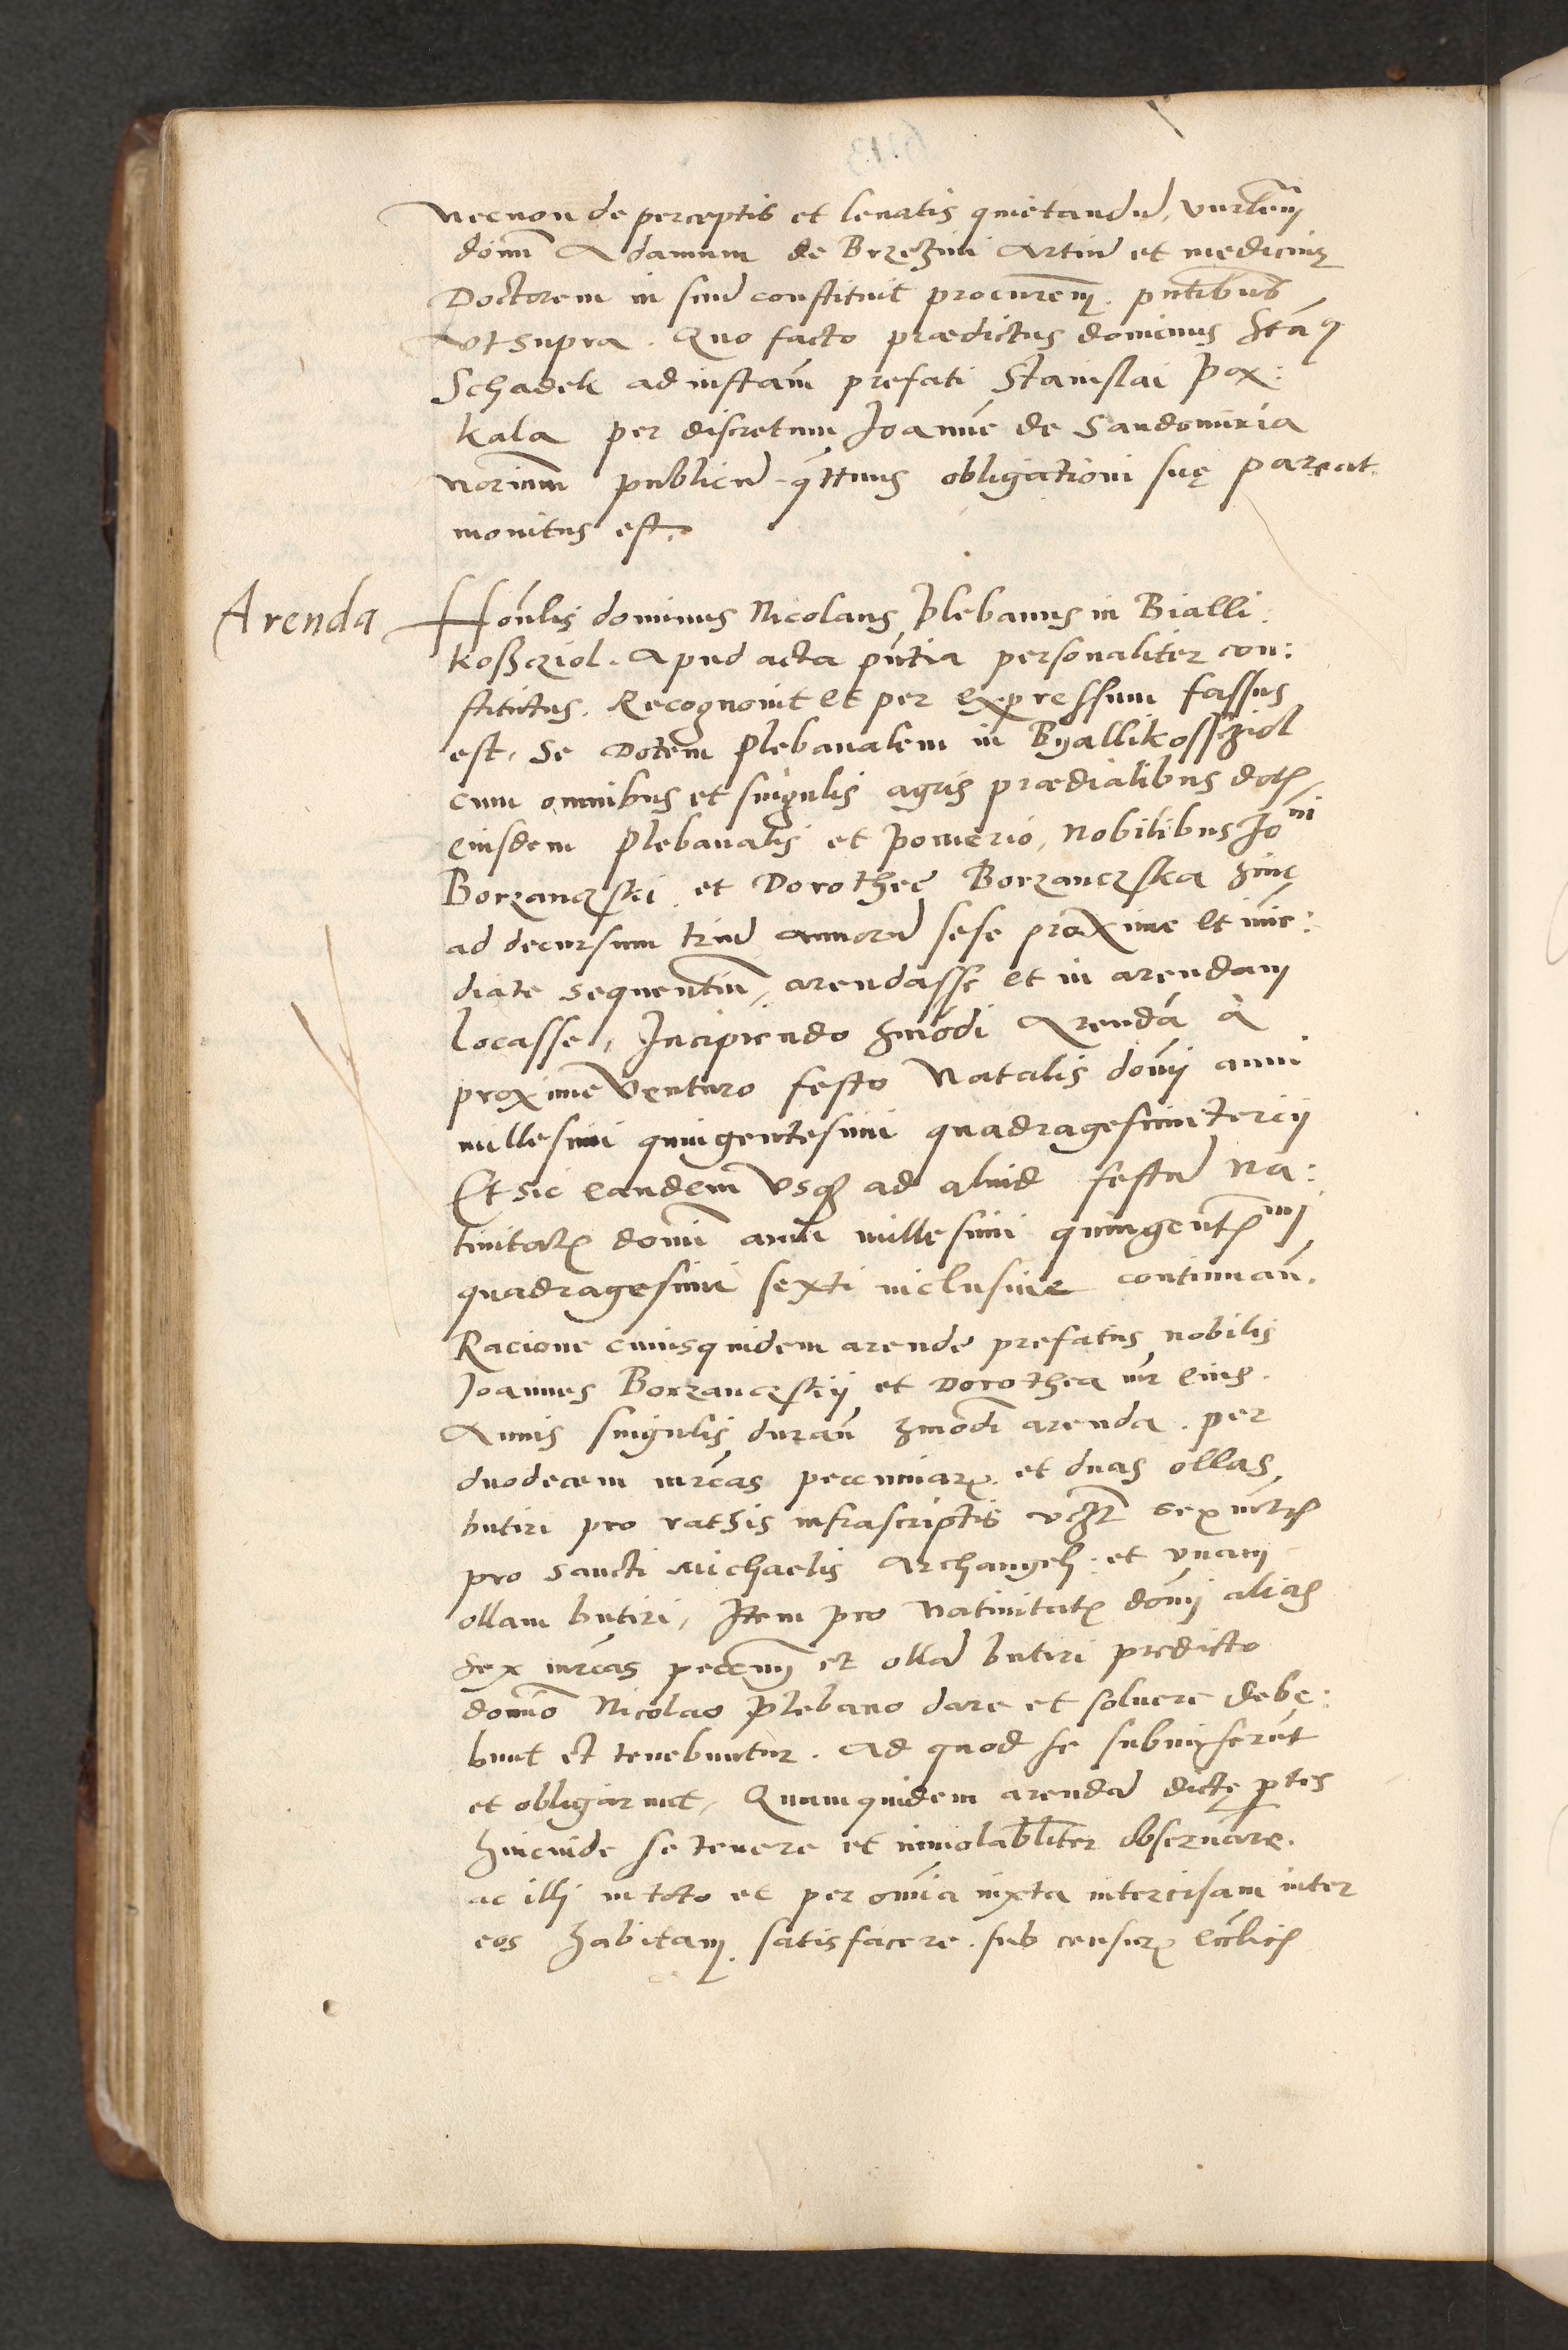 necnon de perceptis et levatis quietandũ, vnr̃lem
dom̃ Adamum de Brzezini Artiũ et medicinę
Doctorem in suũ constituit procurem̃. pñtibus
vt supra. Quo facto prædictus dominus Sta9
Schadek ad instam̃ prefati Stanislai Pox:
kala per discretum Joannẽ de Sandomiria
norium̃ publicũ q̃ttenus obligationi suę pareat
monitus est.
Arenda
Hon̄lis dominus Nicolaus Plebanus in Bialli:
koßcziol. Apud acta pñtia personaliter con:
stitutus. Recognovit et per expressum fassus
est, Se Dotem Plebanalem in Byallikosscziol
cum omnibus et singulis agris prædialibus dotꝭ
eiusdem Plebanalis et pomerio, Nobilibus Joni
Borzanczski et Dorotheę Borzanczska
ad decursum triũ annorũ sese proxime et imme:
diate sequentiũ, arendasse et in arendam
locasse, Incipiendo hm̃odi Arendã à
proxime venturo festo Natalis dom̃i anni
millesimi quingentesimi quadragesimitercij
Et sic eandem vsqȝ ad aliud festũ Na:
tiuitatꝭ domi anni millesimi quingentꝭmi
quadragesimi sexti inclusiue continuan̄.
Racione cuiusquidem arende prefatus nobilis
Joannes Borzanczskij et Dorothea vxr eius.
Annis singulis duran̄ hm̃odi arenda. per
duodecem mrcas peccuniarꝝ et duas ollas
butiri pro rathis infrascriptis vczt sex mrcꝭ
pro sancti Michaelis Archangeli et vnam
ollam butiri, Item pro Natiuitatꝭ dom̃i alias
sex mrcas peccuniꝝ et ollã butiri predicto
domĩo Nicolao Plebano dare et soluere debe:
bunt et tenebuntur. Ad quod se submiserũt
et obligarunt, Quamquidem arendã dictę ptes
hincinde se tenere et inuiolabl̃iter obseruare.
ac illi in toto et per omĩa iuxta intercisam inter
eos habitam satisfacere. sub censurꝭ eccl̃icꝭ